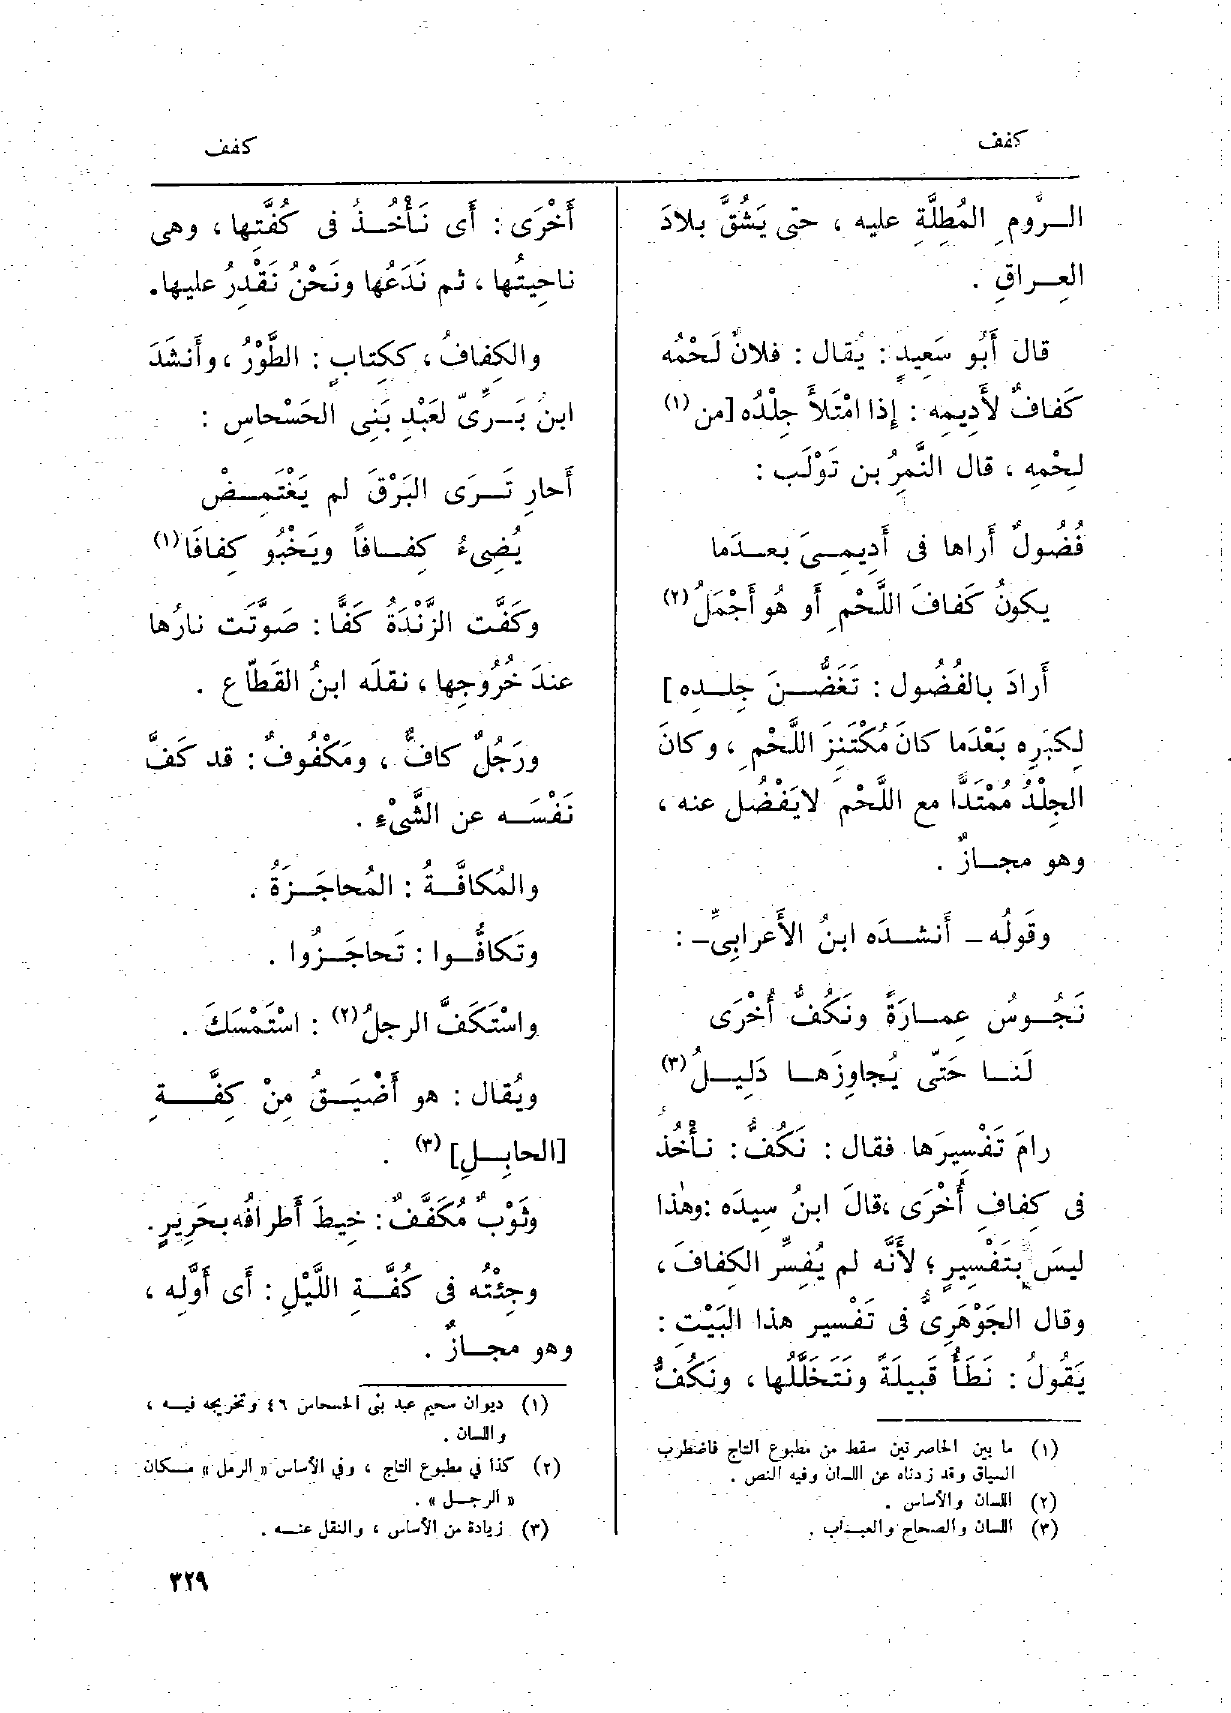 كفف
كفف
الــرُّومِ المُطِلَّةِ عليه ، حتى يَشُقَّ بلادَ
العِــراقِ .
قال أَبُو سَعِيدٍ : يُقال : فلانٌ لَحْمُه
كَفافٌ لأَدِيمِه : إِذا امْتَلأَ جِلْدُه [من (١)
لحْمِه ، قال النَّمِرُ بن تَوْلَب :
فُضُولٌ أَراها فى أَدِيمِــىَ بعــدَما
يكونُ كَفافَ اللَّحْمِ أَو هُو أَجْمَلُ (٢)
أَرادَ بالفُضُول : تَغَضُّــنَ جِلــدِه ]
لكِبَرِه بَعْدَما كانَ مُكْتَنِزَ اللَّحْمِ ، وكانَ
الجِلْدُ مُمْتَدًّا مع اللَّحْم لايَفْضُل عنه ،
وهو مجــازٌ .
وقولُه ــ أَنشــدَه ابنُ الأَعرابِىِّ ــ :
نَجُــوسُ عِمــارَةً ونَكُفُّ أُخْرَى
لَنــا حَتَّى يُجاوِزَهــا دَلِيــلُ (٣)
رامَ تَفْسِيرَها فقال : نَكُفُّ : نــأْخُذُ
فى كِفافِ أُخْرَى ،قالَ ابنُ سِيدَه :وهٰذا
ليسَ بتَفْسِيرٍ ؛ لأَنَّه لم يُفسِّر الكِفافَ ،
وقال الجَوْهَرِىُّ فى تَفْسير هذا البَيْتِ :
يَقُولُ : نَطَأُ قَبِيلَةً ونَتَخَلَّلُها ، ونَكُفُّ
(١) ما بين الحاصرتين سقط من مطبوع التاج فاضطرب
السياق وقد زدناه عن اللسان وفيه النص .
(٢) اللسان والأساس .
(٣) اللسان والصحاح والعبــاب .
أُخْرَى : أَى نَــأْخُــذُ فى كُفَّتِها ، وهى
ناحِيتُها ، ثم نَدَعُها ونَحْنُ نَقْدِرُ عليها.
والكِفافُ ، ككِتابٍ : الطَّوْرُ ، وأَنشَدَ
ابنُ بَــرِّىّ لعَبْدِ بَنِى الحَسْحاس :
أَحارِ تَــرَى البَرْقَ لم يَغْتَمِــضْ
يُضِىءُ كِفــافاً ويَخْبُو كِفافَا (١)
وكَفَّت الزَّنْدَةُ كَفًّا : صَوَّتَت نارُها
عندَ خُرُوجِها ، نقلَه ابنُ القَطّاع .
ورَجُلٌ كافٌّ ، ومَكْفُوفٌ : قد كَفَّ
نَفْسَــه عن الشَّىْءِ .
والمُكافَّــةُ : المُحاجَــزَةُ .
وتَكافُّــوا : تَحاجَــزُوا .
واسْتَكَفَّ الرجلُ (٢) : اسْتَمْسَكَ .
ويُقال : هو أَضْيَــقُ مِنْ كِفَّــــةِ
[الحابِــلِ] (٣) .
وثَوْبٌ مُكَفَّفٌ : خِيطَ أَطرافُه بحَرِيرٍ .
وجِئْتُه فى كُفَّــةِ اللَّيْلِ : أَى أَوَّلِه ،
وهو مجــازٌ .
(١) ديوان سحيم عبد بنى الحسحاس ٤٦ وتخريجه فيــه ،
واللسان .
(٢) كذا في مطبوع التاج ، وفي الأساس « الرمل » مــكان
« الرجــل » .
(٣) زيادة من الأساس ، والنقل عنــه .
٣٢٩